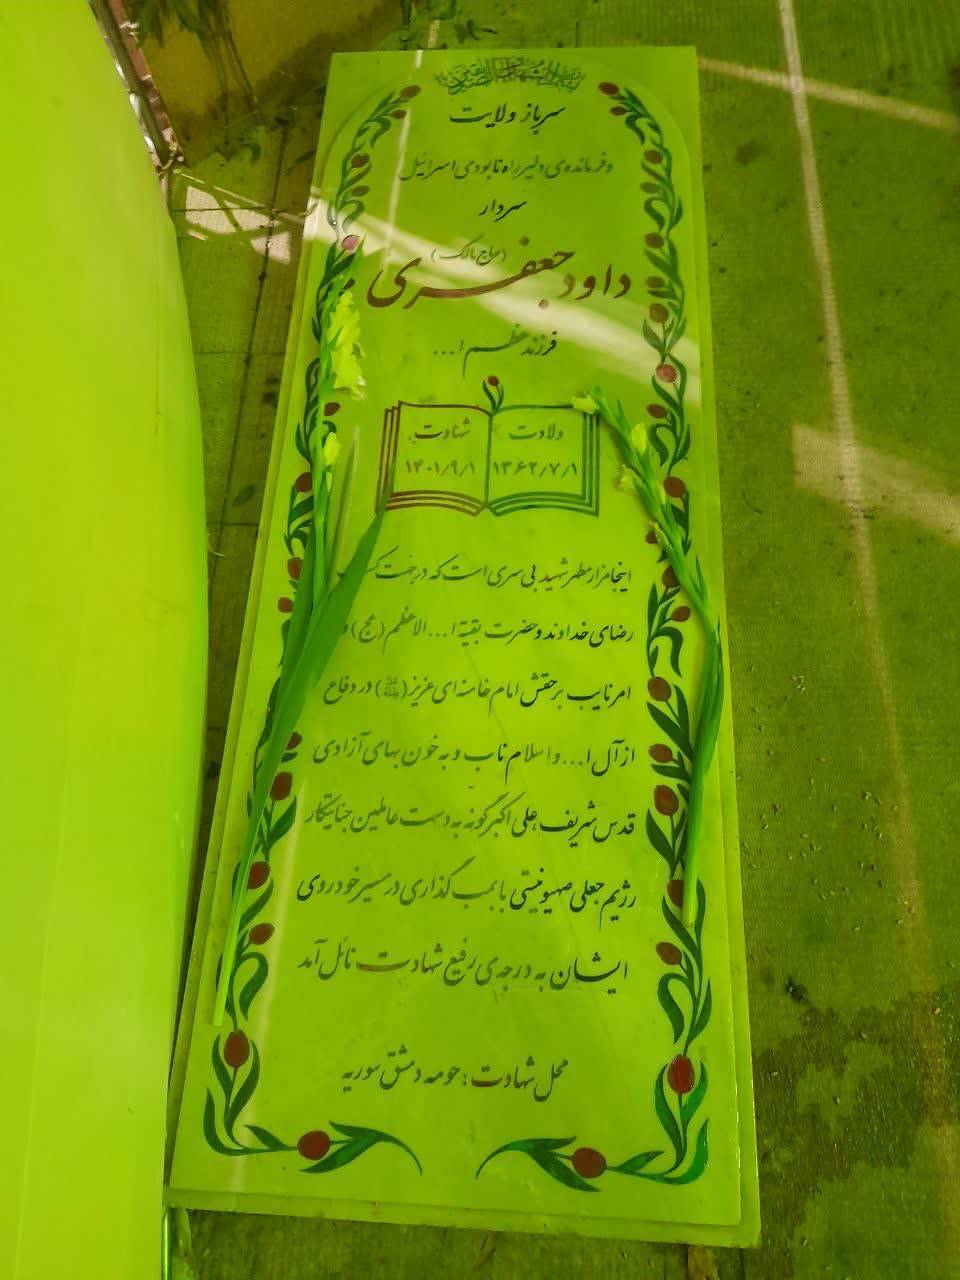 سرباز ولایت
و فرمانده‌ی دلیر راه نابودی اسرائیل
سردار
داود جعفری
(حاج مالک)
فرزند عظم ا...
ولادت
۱۳۶۲/۷/۱
شهادت
۱۴۰۱/۹/۱
اینجا مزار مطهر شهید بی سری است که در جهت
رضای خداوند و حضرت بقیة ا... الاعظم (عج) و
امر نایب بر حقش امام خامنه ای عزیز در دفاع
از آل ا... و اسلام ناب و به خون بهای آزادی
قدس شریف، علی اکبر گونه به دست عاملین جنایتکار
رژیم جعلی صهیونیستی با بمب گذاری در مسیر خودروی
ایشان به درجه‌ی رفیع شهادت نائل آمد
محل شهادت : حومه دمشق سوریه